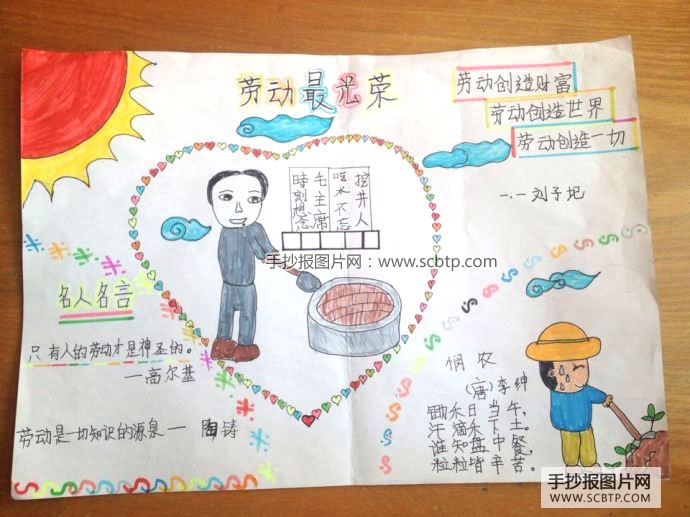 劳动最光荣
劳动创造财富
劳动创造世界
劳动创造一切
一.一刘子圯
挖井人
吃水不忘
毛主席
時刻想念
手抄报图片网：www.scbtp.com
名人名言
只有人的劳动才是神圣的。
—高尔基
劳动是一切知识的源泉一 陶铸
悯农
(唐)李绅
锄禾日当午，
汗滴禾下土。
谁知盘中餐，
粒粒皆辛苦。
手抄报图片网
WWW.SCBTP.COM